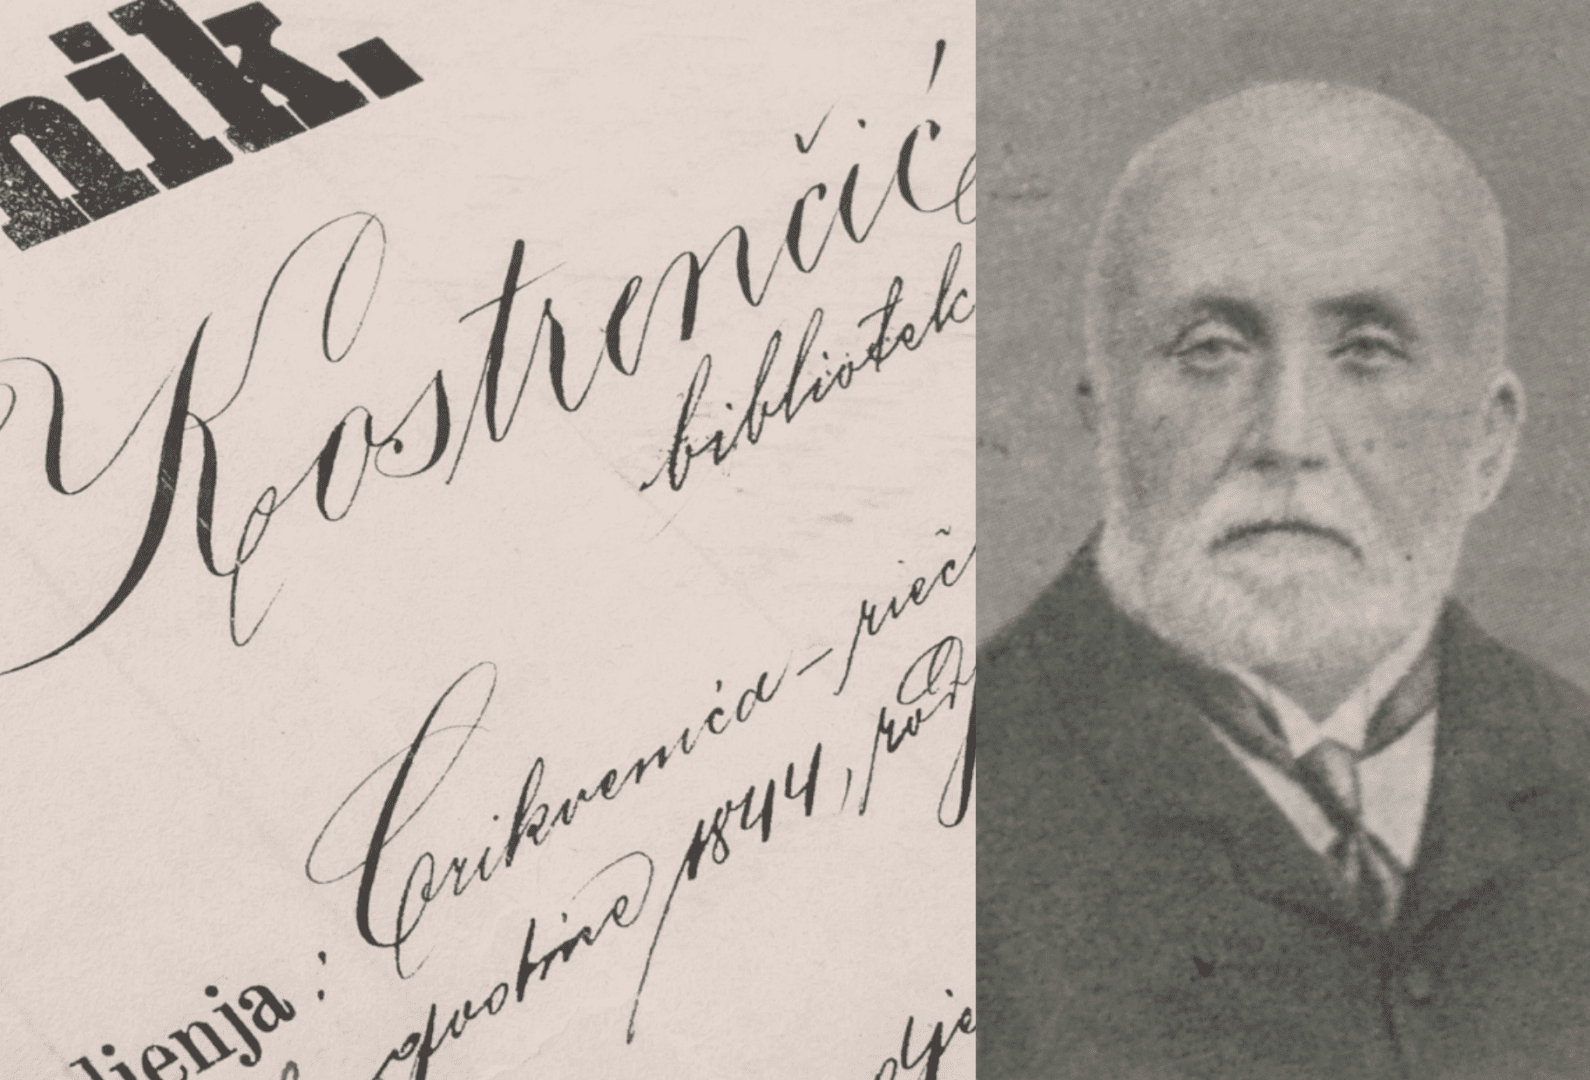 nik.
Kostrenčić
bibliotek
Crikvenica - rieč
1844, rod
ljenja :